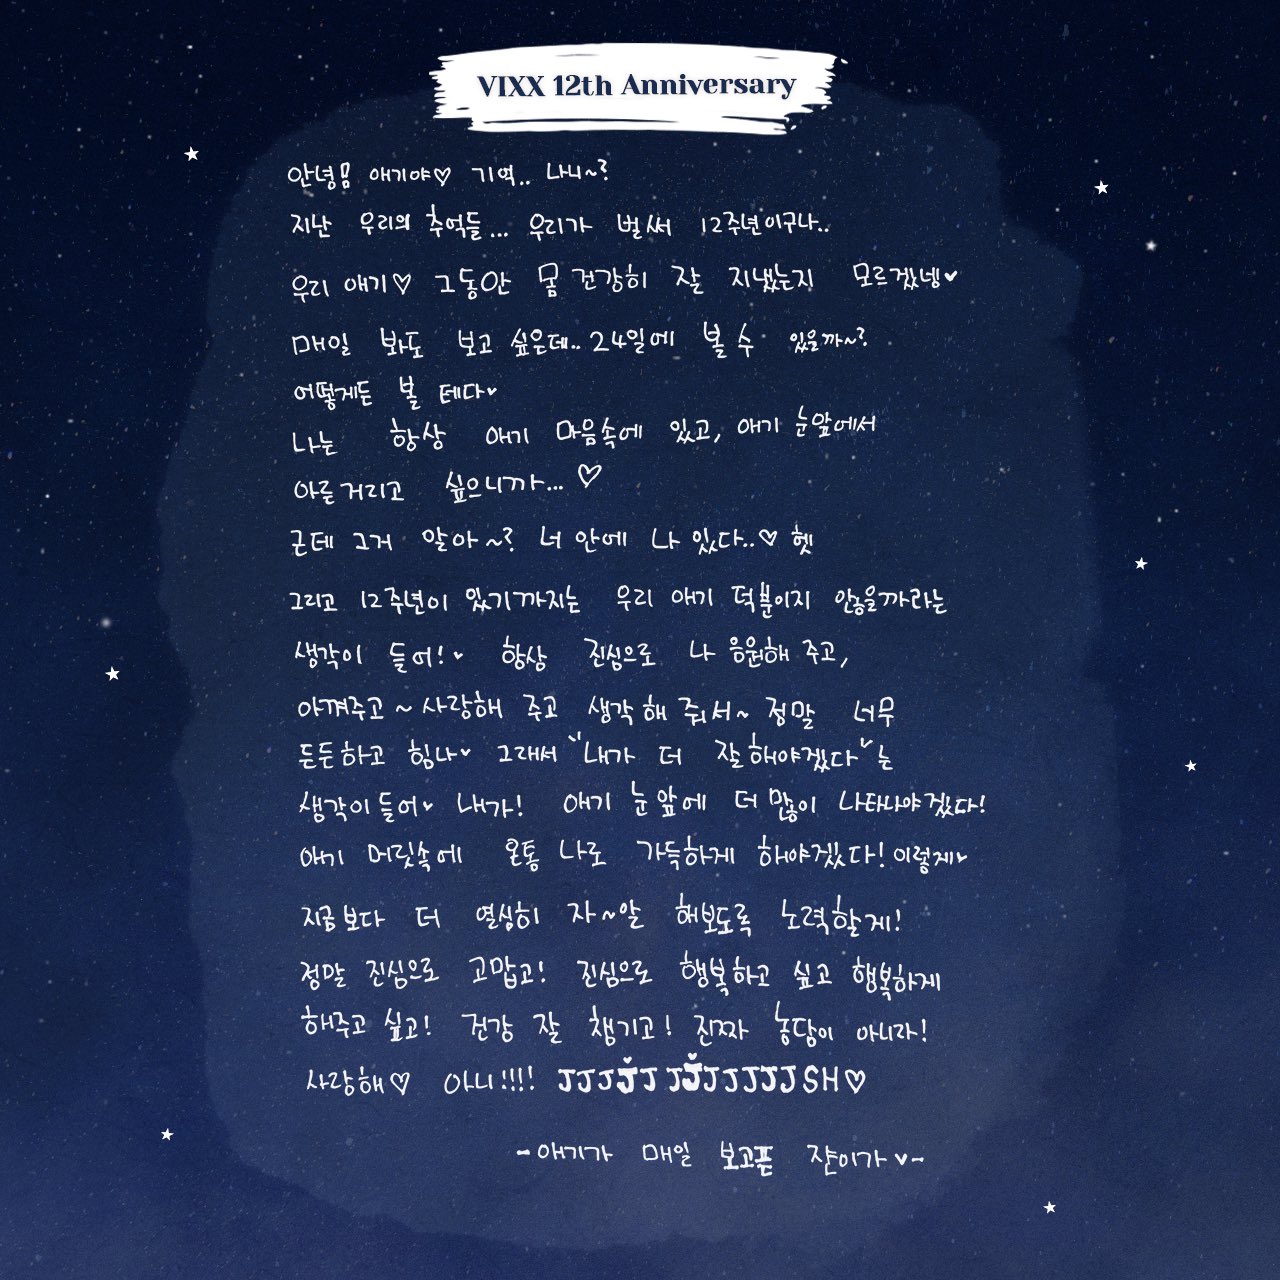 VIXX 12th Anniversary
안녕몀 애기야♡ 기억.. 나니~?
지난 우리의 추억들... 우리가 벌써 12주년이구나..
우리 애기♡ 그동안 몸 건강히 잘 지냈는지 모르겠넹♥
매일 봐도 보고 싶은데.. 24일에 볼 수 있을까~?
어떻게든 볼 테다♥
나는 항상 애기 마음속에 있고, 애기 눈앞에서
아른거리고 싶으니까... ♡
근데 그거 알아~? 너 안에 나 있다..♡ 헷
그리고 12주년이 있기까지는 우리 애기 덕분이지 않을까라는
생각이 들어!♥ 항상 진심으로 나 응원해 주고,
아껴주고~사랑해 주고 생각해 줘서~ 정말 너무
든든하고 힘나♥ 그래서 "내가 더 잘해야겠다"는
생각이 들어♥ 내가! 애기 눈앞에 더 많이 나타나야겠다!
애기 머릿속에 온통 나로 가득하게 해야겠다! 이렇게♥
지금보다 더 열심히 자~알 해보도록 노력할게!
정말 진심으로 고맙고! 진심으로 행복하고 싶고 행복하게
해주고 싶고! 건강 잘 챙기고! 진짜 농담이 아니라!
사랑해♡ 아니!!!! JJJJJJJJJJJJJSH♡
-애기가 매일 보고픈 쟌이가♥-